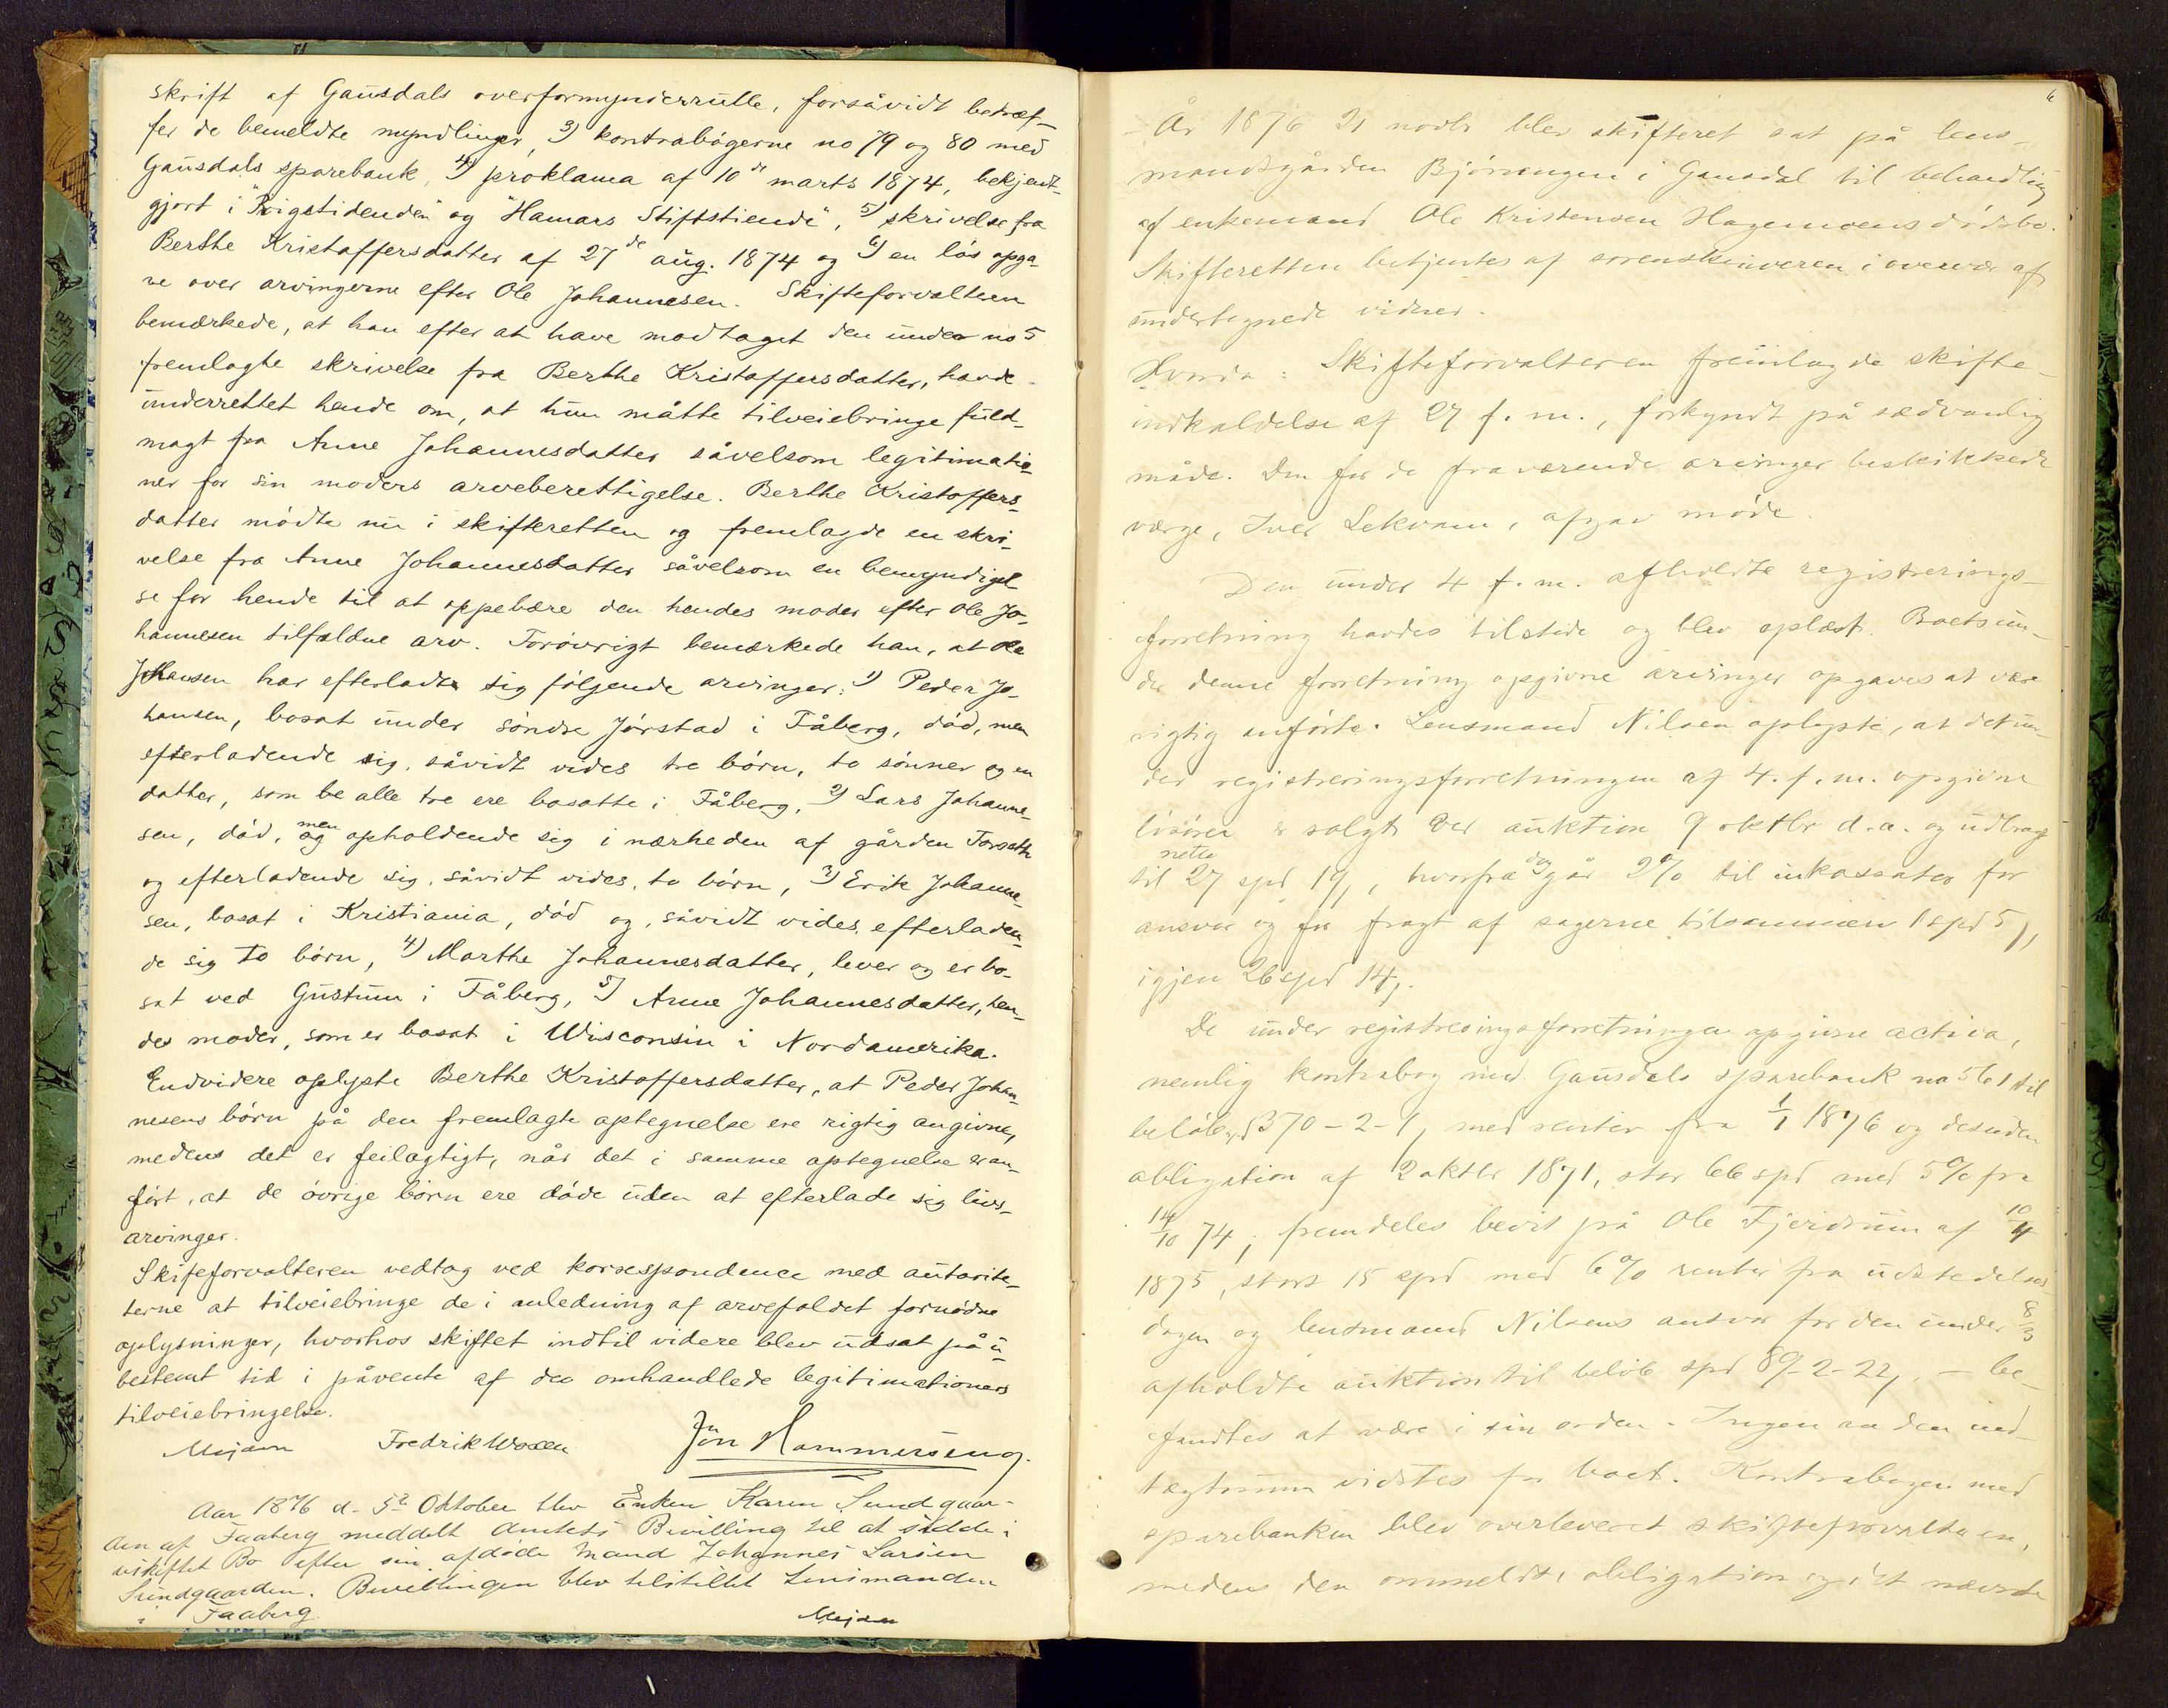 skrift af Gausdals overformynderrulle, forsåvidt betræf-
fer de bemeldte myndlinger, 3) kontrabøgerne no 79 og 80 med
Gausdals sparebank, 4) proklama af 10de marts 1874, bekjendt-
gjort i "Rigstidenden" og "Hamars Stiftstiende", 5) skrivelse fra
Berthe Kristoffersdatter af 27de aug. 1874 og 6) en løs opga-
ve over arvingerne efter Ole Johannesen. Skifteforvalteren
bemærkede, at han efter at have modtaget den under no 5
fremlagte skrivelse fra Berthe Kristoffersdatter, havde
underrettet hende om, at hun måtte tilveiebringe fuld-
magt fra Anne Johannesdatter såvelsom legitimatio-
ner for sin moders arveberettigelse. Berthe Kristoffers-
datter mødte nu i skifteretten og fremlagde en skri-
velse fra Anne Johannesdatter såvelsom en bemyndigel
se for hende til at oppebære den hendes moder efter Ole Jo-
hannesen tilfaldne arv. Forøvrigt bemærkede han, at Ole
Johansen har efterladt sig følgende arvinger: 1) Peder Jo-
hansen, bosat under søndre Jørstad i Fåberg, død, men
efterladende sig, såvidt vides tre børn, to sønner og en
datter, som be alle tre ere bosatte i Fåberg, 2) Lars Johanne-
sen, død, og men opholdende sig i nærheden af gården
og efterladende sig, såvidt vides, to børn, 3) Erik Johanne-
sen, bosat i Kristiania, død og, såvidt vides, efterladen-
de sig to børn, 4) Marthe Johannesdatter, lever og er bo-
sat ved Gustum i Fåberg, 5) Anne Johannesdatter, hen-
des moder, som er bosat i Wisconsin i Nordamerika.
Endvidere oplyste Berthe Kristoffersdatter, at Peder Johan-
nesens børn på den fremlagte optegnelse ere rigtig angivne,
medens det er feilagtigt, når det i samme optegnelse er an-
ført, at de øvrige børn ere døde uden at efterlade sig livs-
arvinger.
Skifeforvalteren vedtog ved korrespondence med autorite-
terne at tilveiebringe de i anledning af arvefaldet fornødne
oplysninger, hvorhos skiftet indtil videre blev udsat på u-
bestemt tid i påvente af de omhandlede legitimationers
tilveiebringelse.
Mejdam Fredrik Jon Hammerseng.
Aar 1876 d. 5te Oktober blev Enken Karen Sundgaar-
den af Faaberg meddelt Amtets Bevilling til at sidde i
uskiftet Bo efter sin afdøde Mand Johannes Larsen
Sundgaarden. Bevillingen blev tilstillet Lensmanden
i Faaberg. Mejdam
6
År 1876 21 novbr blev skifteret sat på lens-
mandsgården Bjørnengen i Gausdal til behandling
af enkemand Ole Kristensen Hagemoens dødsbo.
Skifteretten betjentes af sorenskriveren i overvær af
undertegnede vidner.
Hvorda: Skifteforvalteren fremlagde skifte-
indkaldelse af 27 f. m., forkyndt på sædvanlig
måde. Den for de fraværende arvinger beskikkede
værge, Iver Lekvam, afgav møde.
Den under 4 f. m. afholdte registrerings-
forretning havdes tilstede og blev oplæst. Boets un-
der denne forretning opgivne arvinger opgaves at være
rigtig anførte. Lensmand Nilsen oplyste, at det un-
der registreringsforretningen af 4. f. m. opgivne
løsøre er solgt ved auktion 9 oktbr d. a. og udbragt
til netto 27 spd 19, hvorfra dog går 2% til inkassator for
ansvar og for fragt af sagerne tilsammen 1 spd 5,
igjen 26 spd 14,.
De under registreringsforretningen opgivne activa,
nemlig kontrabog med Gausdals sparebank no 561 til
beløb spd 370-2-1, med renter fra 1/1 1876 og desuden
obligation af 2 oktbr 1871, stor 66 spd med 5% fra
14/10 74, fremdeles bevis på Ole Fjerdrum af 10/4
1875, stort 15 spd med 6% renter fra udstedelses-
dagen og lensmand Nilsens ansvar for den under 8/3
afholdte auktion til beløb spd 89-2-22, - be-
fandtes at være i sin orden. Ingen anden ind-
tægt vidstes for boet. Kontrabogen med
sparebanken blev overleveret skifteforvalteren,
medens den ommeldte obligation og det nævnte